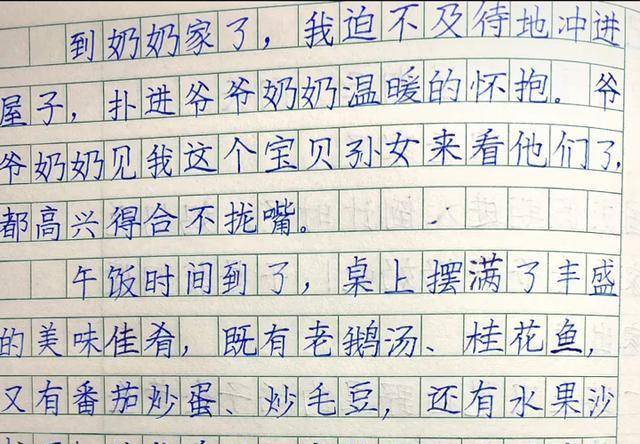 到奶奶家了，我迫不及待地冲进
屋子，扑进爷爷奶奶温暖的怀抱。爷
爷奶奶见我这个宝贝孙女来看他们了，
都高兴得合不拢嘴。
午饭时间到了，桌上摆满了丰盛
的美味佳肴，既有老鹅汤、桂花鱼，
又有番茄炒蛋、炒毛豆，还有水果沙